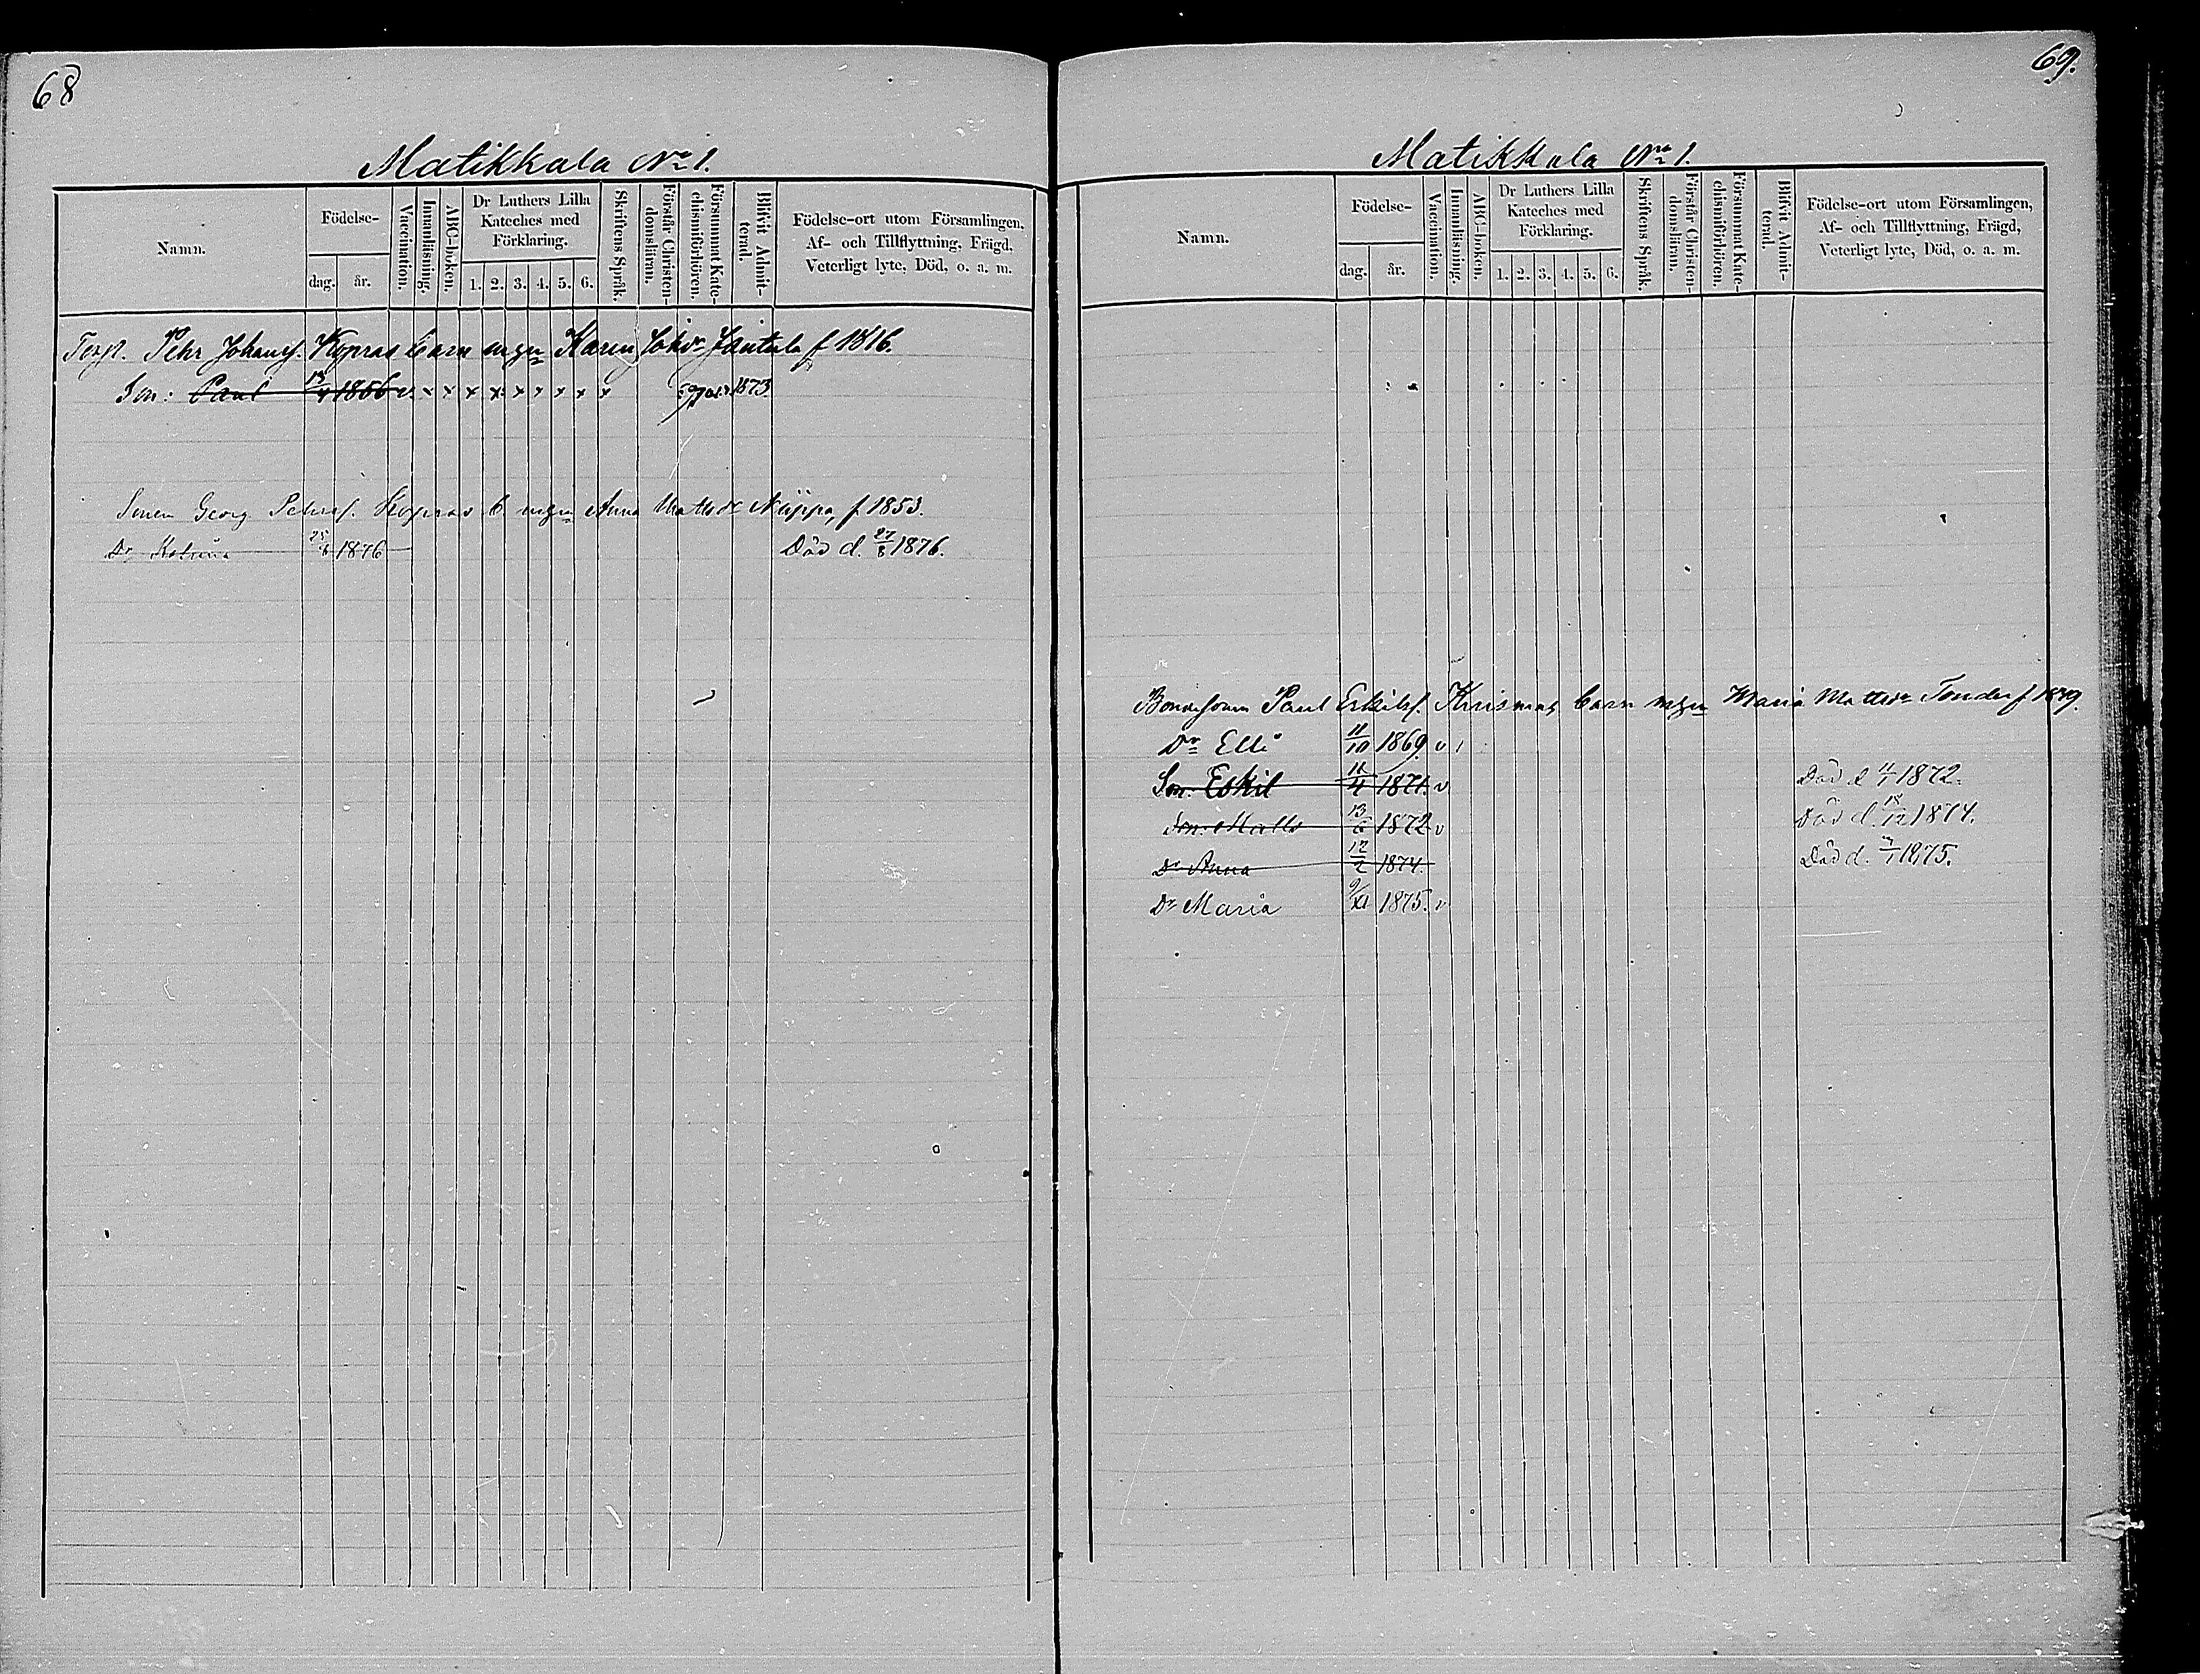 68
Matikkala No 1.
Namn.
Födelse-
dag.
år.
Vaccination.
Innanläsning.
ABC-boken.
Dr Luthers Lilla
Kateches med
Förklaring.
1. 2. 3. 4. 5. 6.
Skriftens Språk.
Förstår Christen-
domsläran.
Försummat Kate-
chismiförhören.
Blifvit Admit-
terad.
Födelse-ort utom Församlingen,
Af- och Tillflyttning, Frägd,
Veterligt lyte, Död, o. a. m.
Torp. Pehr Johansf. Kopras barn m hu Karin Johdr Jäntula f 1816.
Son: Paul 1856 v. x x x x x x x x x 1873
Sonen Georg Pehrsf. Kopras b mhu Anna Mattsdr Näppa, f 1853.
Dr Katrina 25/6 1876 Död d. 27/8 1876.
69.
Matikkala No 1.
Namn.
Födelse-
dag.
år.
Vaccination.
Innanläsning.
ABC-boken.
Dr Luthers Lilla
Kateches med
Förklaring.
1. 2. 3. 4. 5. 6.
Skriftens Språk.
Förstår Christen-
domsläran.
Försummat Kate-
chismiförhören.
Blifvit Admit-
terad.
Födelse-ort utom Församlingen,
Af- och Tillflyttning, Frägd,
Veterligt lyte, Död, o. a. m.
Bondesonen Paul Eskilsf. Kuismas barn mhu Maria Mattsdr Tonder f 1849.
Dr Elli 11/10 1869 v
Son. Eskil 11/4 1871. v Död d 1872.
Son. Matts 13/6 1872 v Död d. 18/12 1874.
Dr Anna 12/2 1874. Död d. 1875.
Dr Maria 9/XI 1875. v